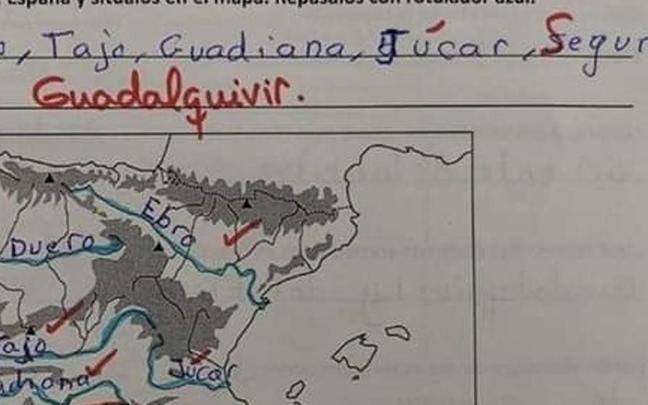 España y sitúalos en el mapa. Repásalos con rotulador azul.
, Tajo, Guadiana, Júcar, Segur
Guadalquivir.
Ebro
Duero
Tajo
Júcar
adiana